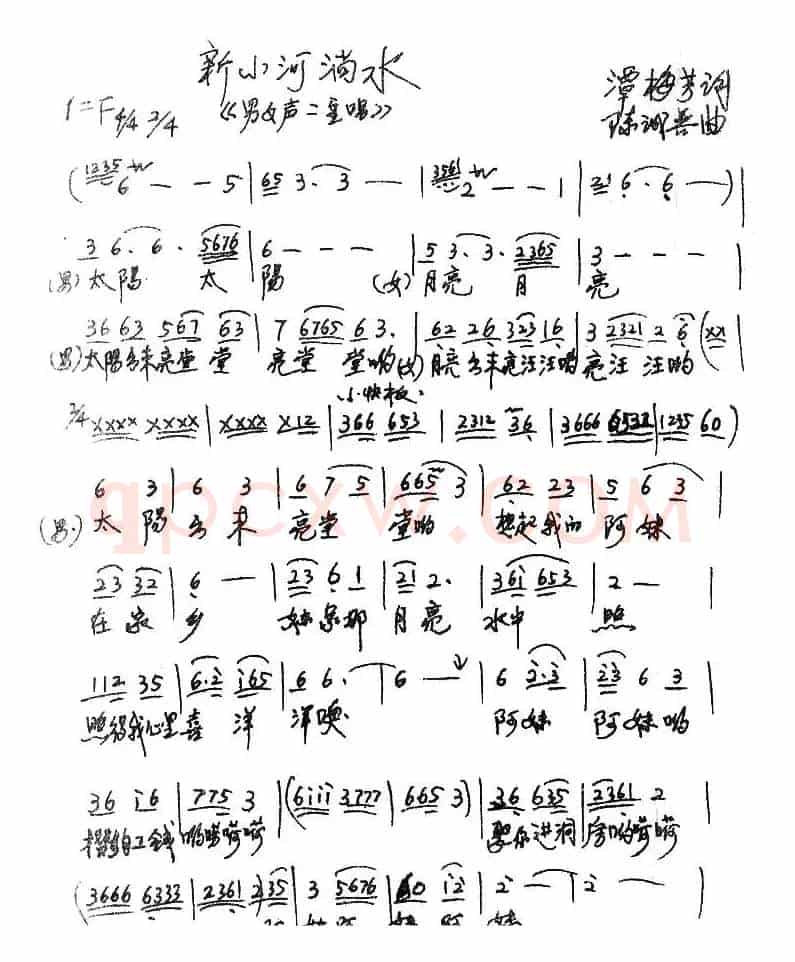 新小河淌水
1=F 4/4 2/4 《男女声二重唱》 潭梅芳词
曲
(1235 6 - - 5 | 65 3. 3 - | 3561 2 - - 1 | 21 6. 6 - )|
3 6. 6. 5676 | 6 - - - | 5 3. 3. 2365 | 3 - - - |
(男)太阳 太 阳 (女)月亮 月 亮
36 63 567 63 | 7 6765 6 3. | 62 26 323 16 | 3 2321 2 6 (xx
(男)太阳出来亮堂 堂 亮堂 堂哟(女)月亮出来亮汪汪哟亮汪 汪哟
小快板
2/4 xxxx xxxx | xxxx x12 | 366 653 | 2312 36 | 3666 6532 | 1235 60 )
6 3 | 6 3 | 6 7 5 | 665 3 | 62 23 | 5 6 3 |
(男.)太 阳 出 来 亮堂 堂哟 想起我的 阿 妹
23 32 | 6 - | 23 6 1 | 21 2. | 36i 653 | 2 - |
在 家 乡 妹象那 月亮 水中 照
112 35 | 6.2 i65 | 6 6. | 6 - | 6 2.3 | 23 6 3 |
照得我心里喜 洋 洋噢 阿妹 阿妹哟
36 i6 | 775 3 | (6iii 3777 | 665 3) | 36 635 | 2361 2
娶你进洞 房哟嗬嗬
(3666 6333 | 2361 2) 35 | 3 5676 | 60 i2 | 2 - | 2 - |